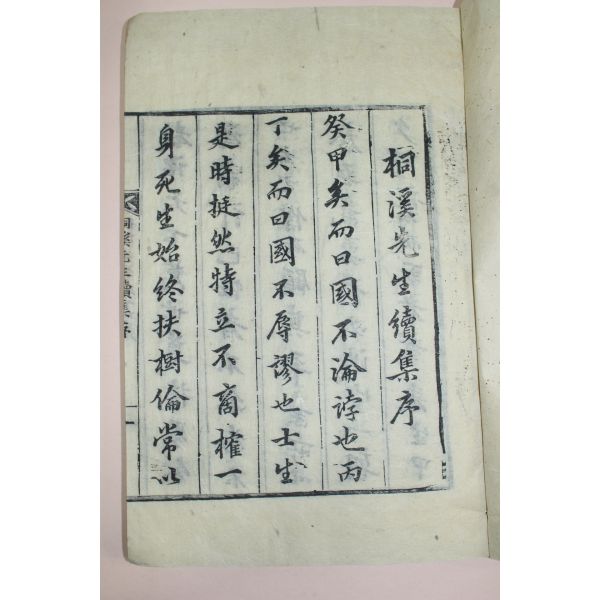 桐溪先生續集序
癸甲矣而曰國不淪誖也丙
丁矣而曰國不辱謬也士生
是時挺然特立不离搉一
身死生始終扶樹倫常以
桐溪先生續集序
一